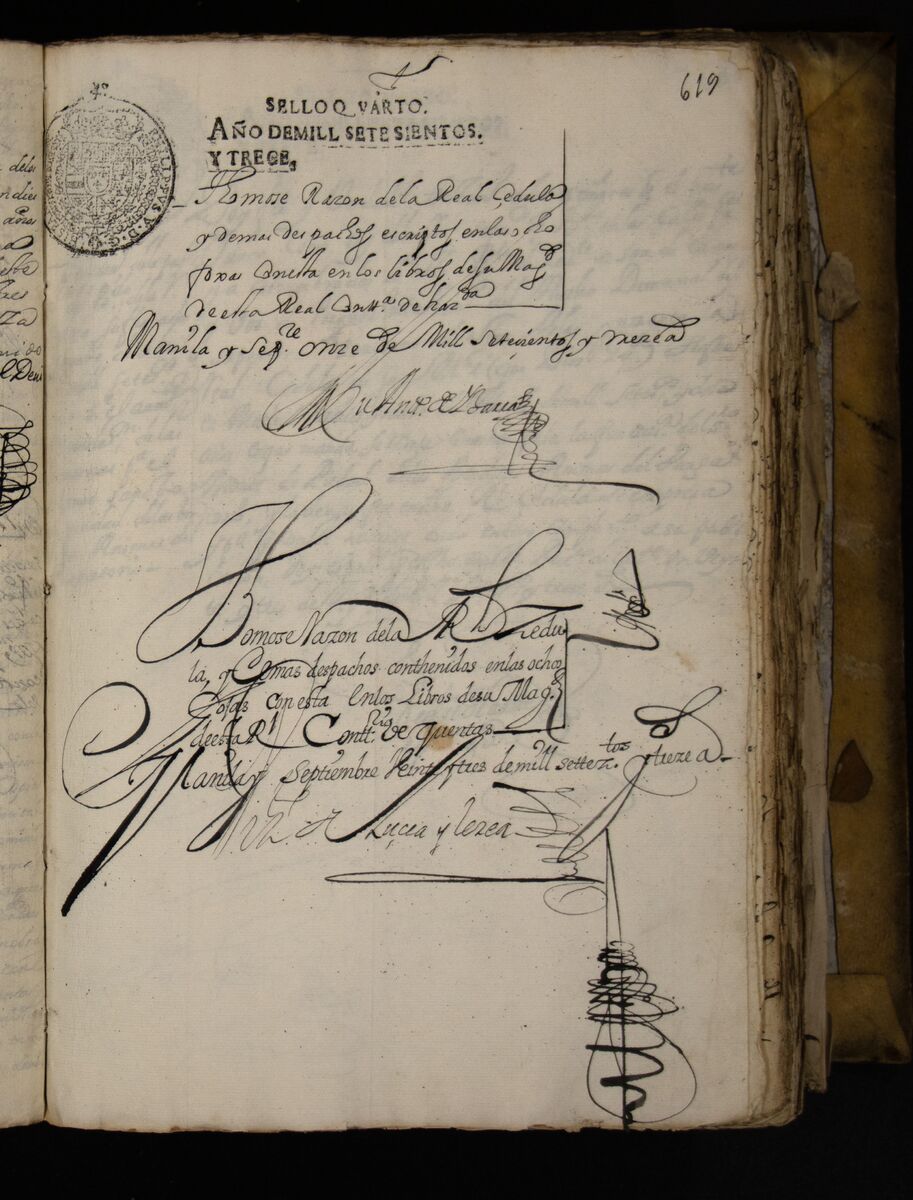 619
SELLO QVARTO.
AÑO DE MILL SETESIENTOS.
Y TRECE,
PHILIPPVS V D G
Thomose Razon dela Real Çedula
y demas despachos escriptos en las ocho
foxas con esta en los libros de su Magd
de esta Real Contta. de hazda
Manila y Sepre. onze de Mill Setecientos y treze as
Thomose Razon dela Rl Zedu
la, y Demas despachos conthenidos en las ocho
fojas con esta En los Libros de su Magd
de esta Rl Conttria de quentas
Manila y Septiembre Veinte y tres de mill settezstos y treze as
Luçea y lezea